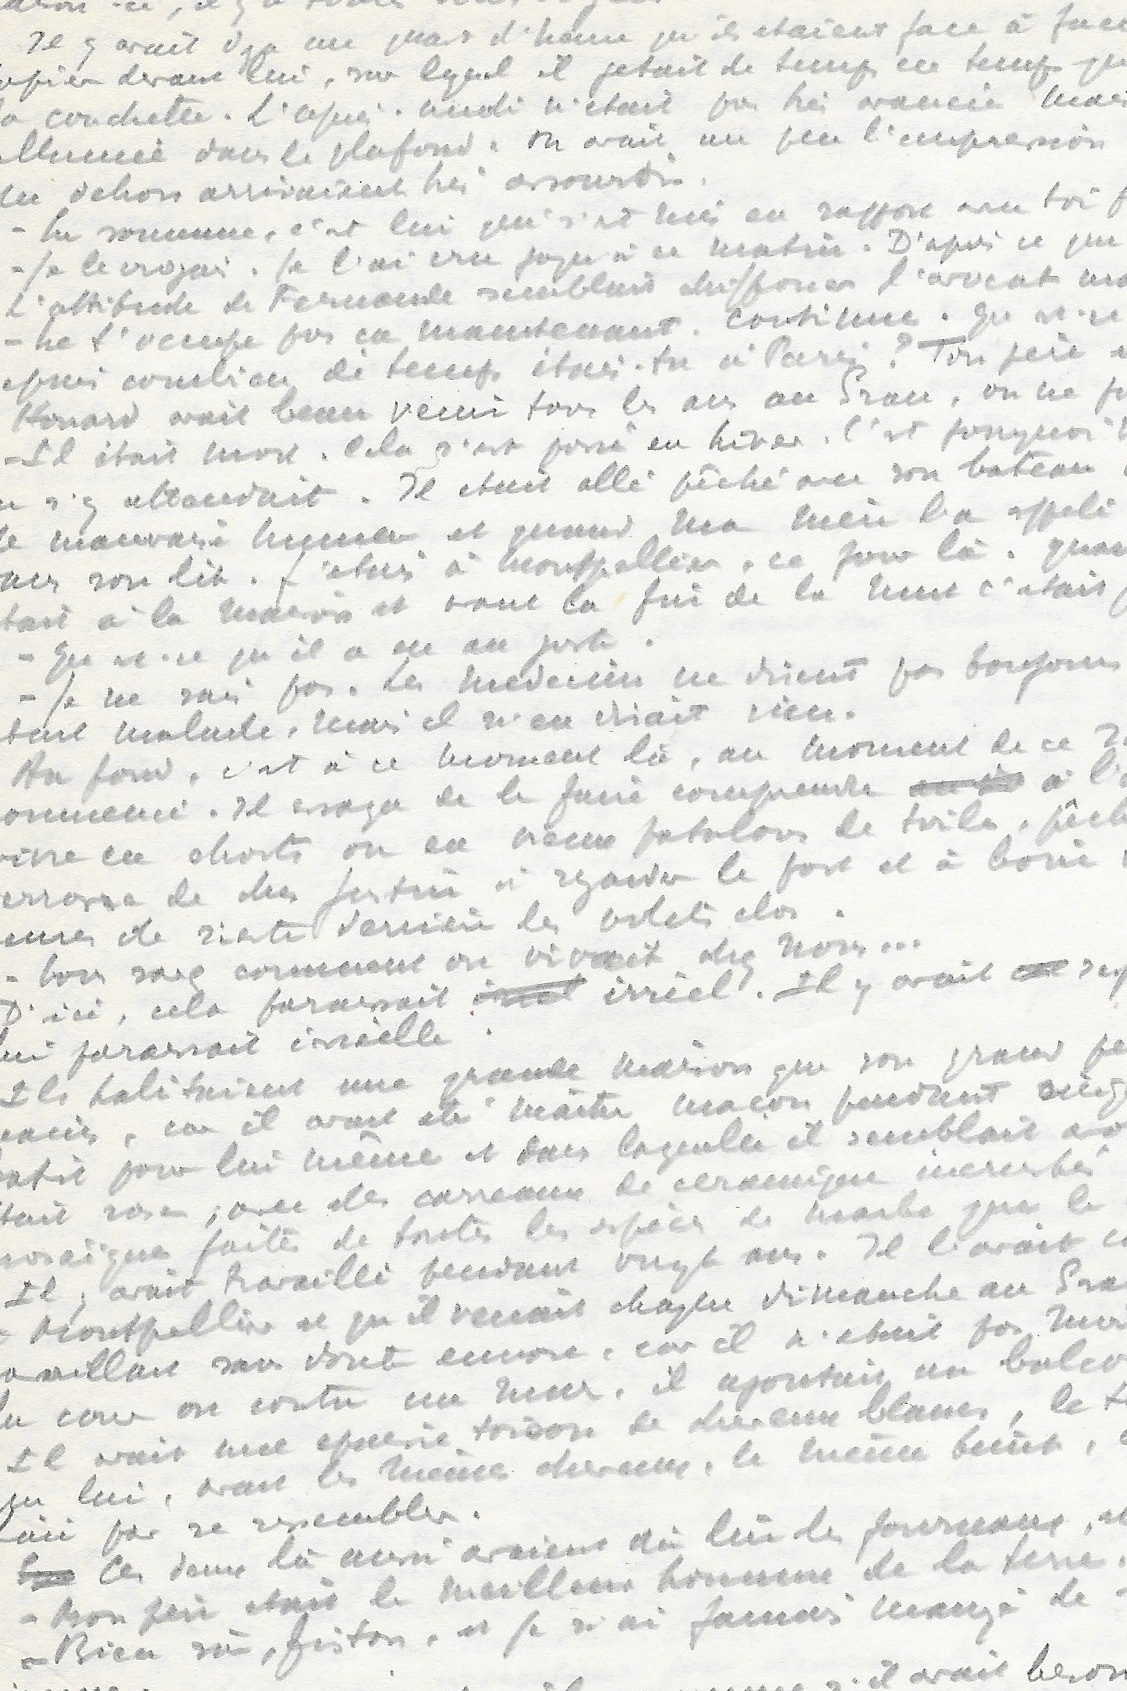 Il y avait déjà un quart d'heure qu'ils étaient face à face
papier devant lui, sur lequel il jetait de temps en temps
la couchette. L'après-midi n'était pas très avancé mais
allumé dans le plafond. On avait un peu l'impression
du dehors arrivaient très assourdis.
- En somme, c'est lui qui s'est mis en rapport avec toi
- Je le croyais. Je l'ai cru jusqu'à ce matin. D'après ce que
L'attitude de Fernande semblait chiffonner l'avocat
- Ne t'occupe pas ça maintenant. Continue. Qu'est-ce
depuis combien de temps étais-tu à Paris ? Ton père
avait beau venir tous les ans au Grau, on ne
- Il était mort. Cela s'est passé en hiver. C'est pourquoi
s'y attendait. Il était allé pêché avec son bateau
de mauvaise humeur et quand ma mère l'a appelé
dans son lit. J'étais à Montpellier, ce jour là.
était à la maison et avant la fin de la nuit c'était
- Qu'est-ce qu'il a eu au juste.
- Je ne sais pas. Les médecins ne disent pas toujours
était malade, mais il n'en disait rien.
Au fond, c'est à ce moment là, au moment de ce
commencé. Il essaya de le faire comprendre à
vivre en shorts ou en vieux patalons de toile,
terrasse de chez Justin à regarder le port et à boire
heures de sieste derrière les volets clos.
- Vous savez comment on vivait chez nous...
D'ici, cela paraissait irréel. Il y avait
lui paraissait irréelle.
Ils habitaient une grande maison que son grand
maçon, car il avait été maître maçon pendant
batie pour lui même et dans laquelle il semblait
était rose, avec des carreaux de céramique incrustés
mosaïques faites de toutes les espèces de marbre que le
Il y avait travaillé pendant vingt ans. Il l'avait
à Montpellier et qu'il venait chaque dimanche au Grau
travaillait sans doute encore, car il n'était pas mort
la cour ou contre un mur, il ajoutait un balcon
Il avait une épaisse toison de cheveux blancs, le
lui, avait les mêmes cheveux, le même
par se ressembler.
Ces deux là aussi avaient dû lire les journaux,
- Mon père était le meilleur homme de la terre.
- Bien sûr, fiston, et je n'ai jamais mangé de
s'il avait besoin